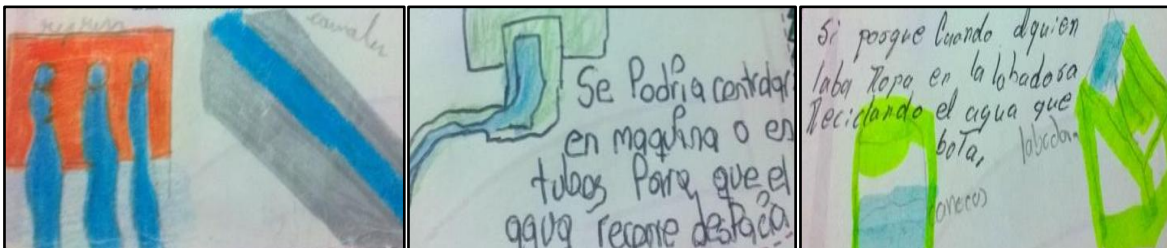 canales
Se Podria contralar
en maquina o en
tubos Para que el
agua recorre despacia
Si porque Cuando alguien
laba Ropa en la labadora
Reciclando el agua que
bota,
labadora